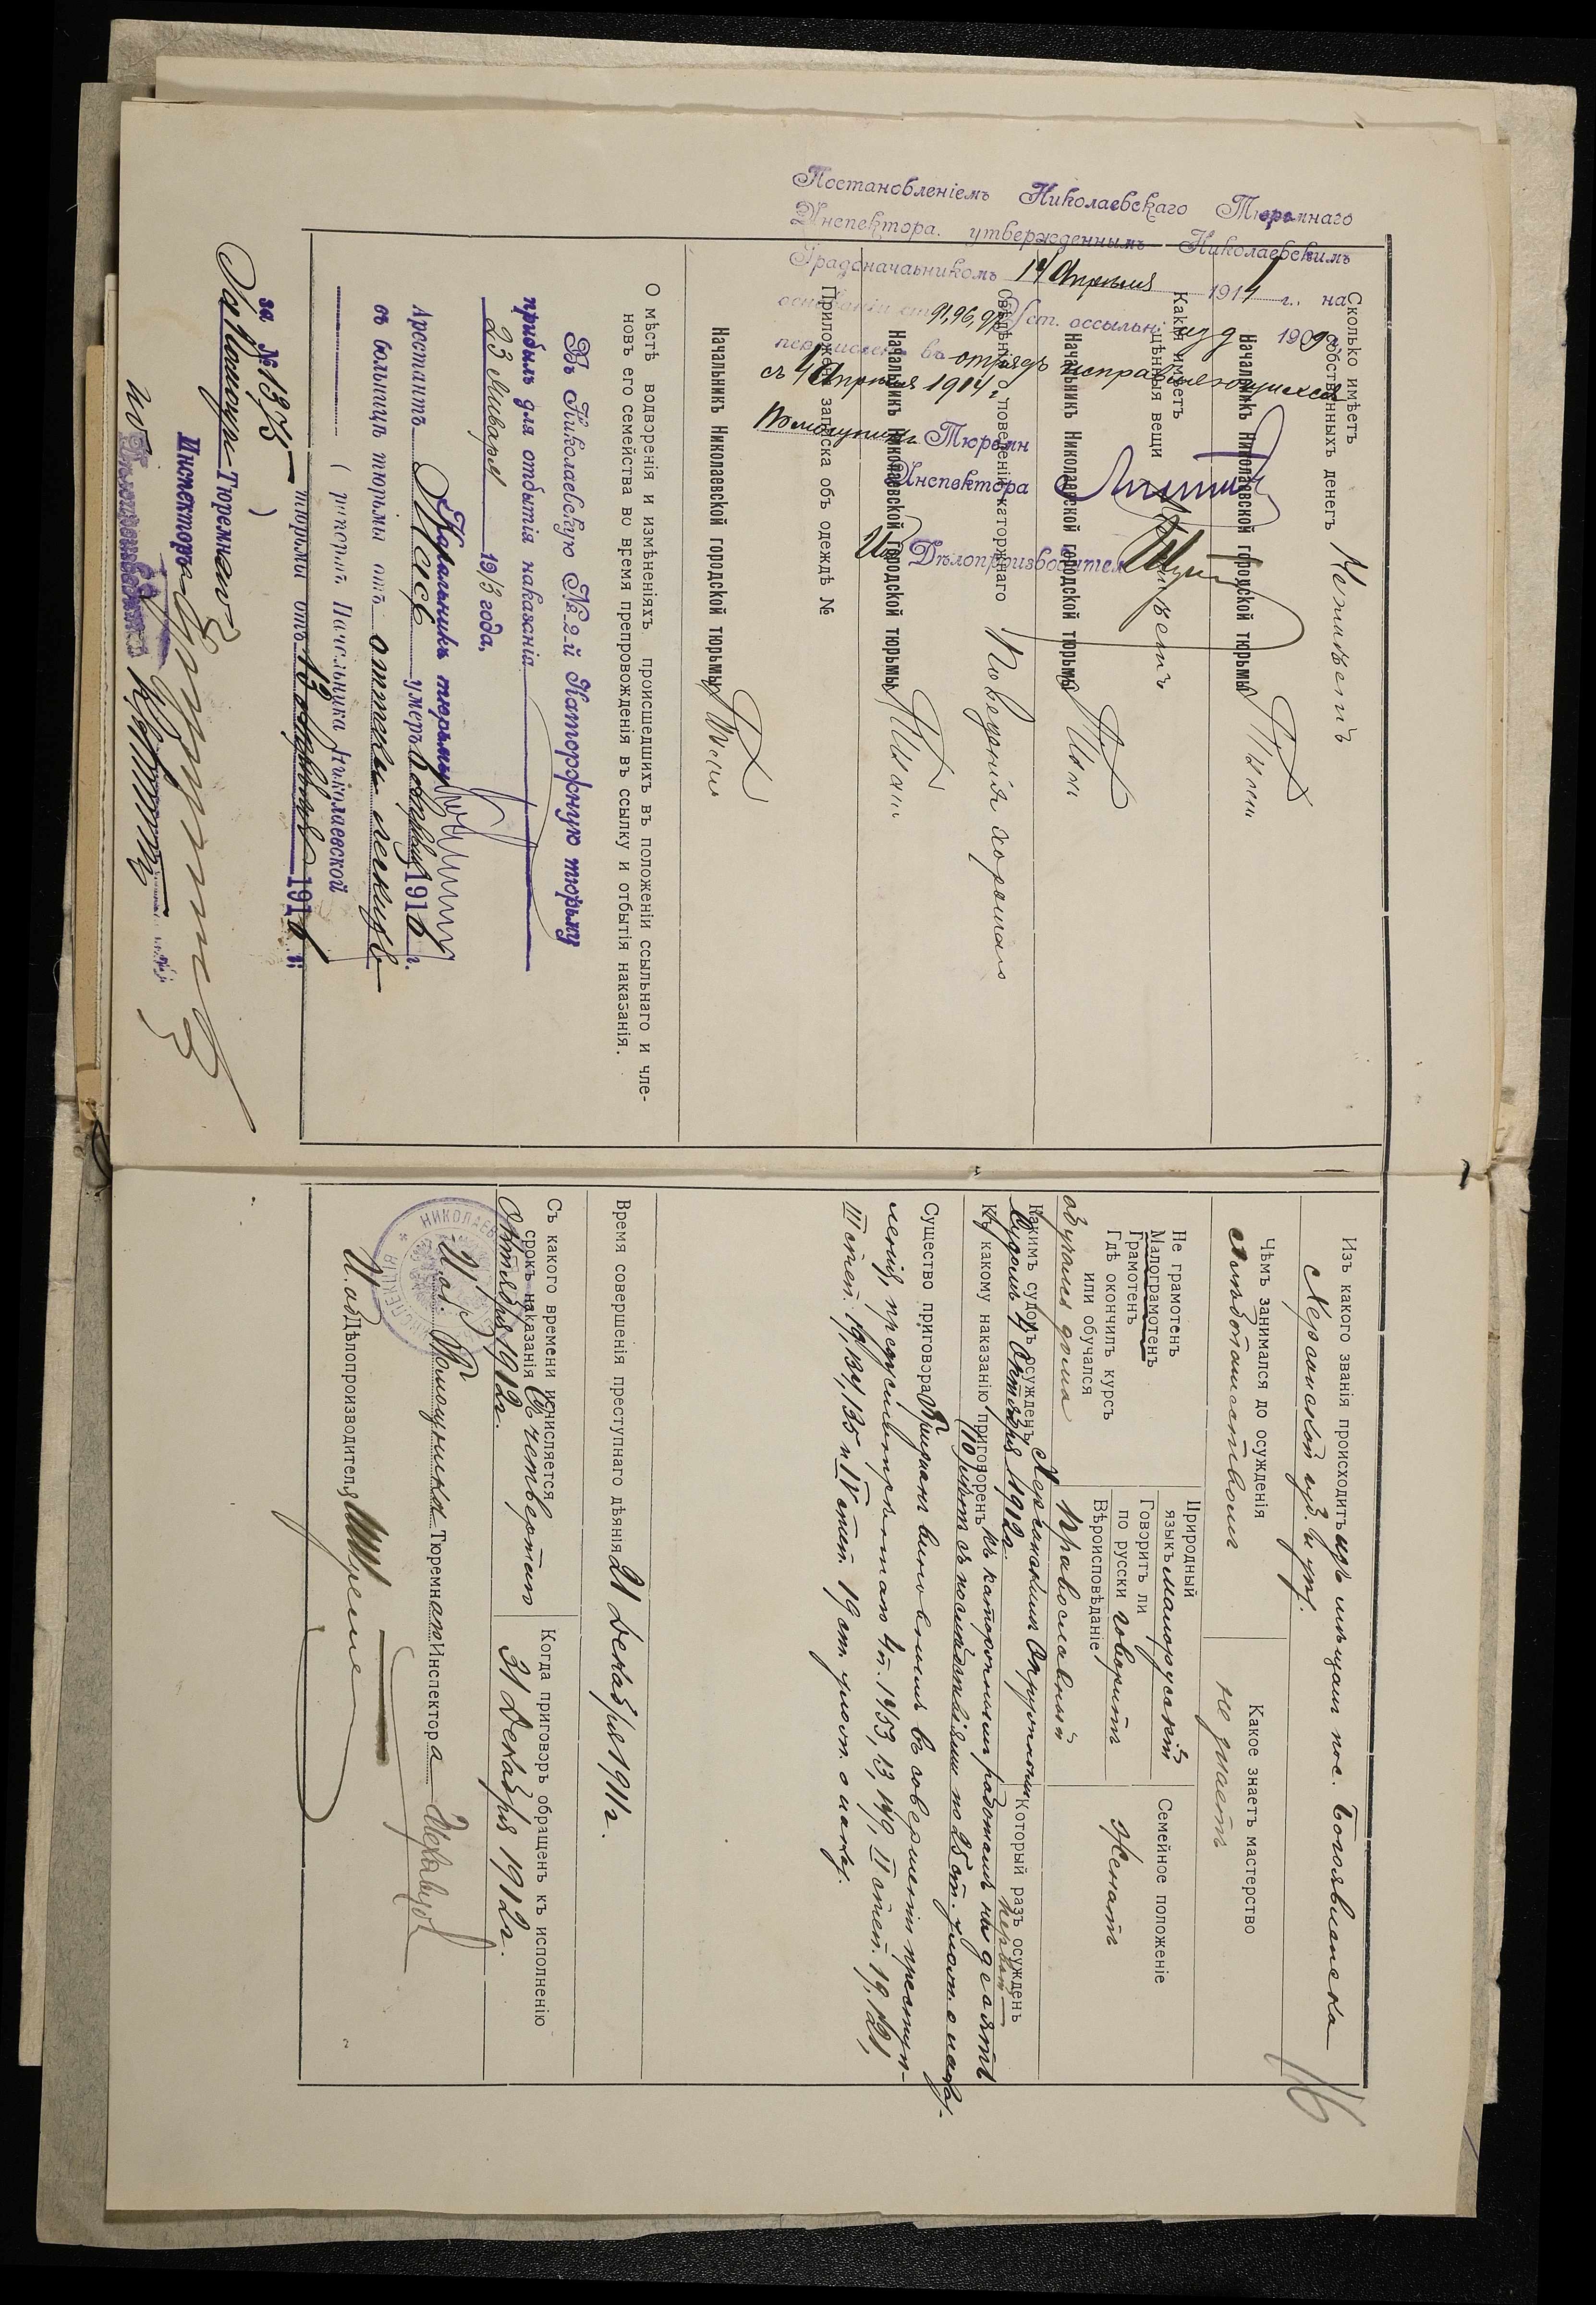 Изъ какого званія происходитъ изъ мѣщанъ пос. Богоявленска
Херсонской губ. и у.
116
Чѣмъ занимался до осужденія
хлѣбопашествомъ
Какое знаетъ мастерство
не знаетъ
Не грамотенъ
Малограмотенъ
Грамотенъ
Гдѣ окончилъ курсъ
или обучался
обучался дома
Природный
языкъ малорусскій
Говоритъ ли
по русски говоритъ
Вѣроисповѣданіе
православный
Семейное положеніе
женатъ
Какимъ судомъ осужденъ Херсонскимъ Окружнымъ
Судомъ 4 Октября 1912 г.
Который разъ осужденъ
первый
Къ какому наказанію приговоренъ къ каторжнымъ работамъ на десять
(10) лѣтъ съ послѣдствіями по 25 ст. улож. о наказ.
Существо приговора Признанъ виновнымъ въ совершеніи преступ-
ленія, предусмотрѣннаго 4 п. 1453, 13, 149, II степ. 19, 121,
III степ. 19, 134, 135 и IV степ. 19 ст. улож. о наказ.
Время совершенія преступнаго дѣянія 21 Декабря 1911 г.
Съ какого времени исчисляется
срокъ наказанія Съ четвертаго
Октября 1912 г.
Когда приговоръ обращенъ къ исполненію
31 Декабря 1912 г.
И. об. Помощника Тюремнаго Инспектора
И. об. Дѣлопроизводителя
НИКОЛАЕВ
Постановленіемъ Николаевскаго Тюремнаго
Инспектора, утвержденнымъ Николаевскимъ
Градоначальникомъ 14 Апрѣля 1914 г., на
основаніи ст. 91, 96, 97 Уст. о ссыльн. изд. 1909 г.
перечисленъ въ отрядъ исправляющихся
съ 4 Апрѣля 1914 г.
Помощникъ Тюремн
Инспектора
Дѣлопроизводитель
Сколько имѣетъ
собственныхъ денегъ Не имѣетъ
Начальникъ Николаевской городской тюрьмы
Какія имѣетъ
цѣнныя вещи Не имѣетъ
Начальникъ Николаевской городской тюрьмы
Свѣдѣнія о поведеніи каторжнаго Поведенія хорошаго
Начальникъ Николаевской городской тюрьмы
Приложена записка объ одеждѣ №
Начальникъ Николаевской городской тюрьмы
О мѣстѣ водворенія и измѣненіяхъ происшедшихъ въ положеніи ссыльнаго и чле-
новъ его семейства во время препровожденія въ ссылку и отбытія наказанія.
Въ Николаевскую № 2-й Каторжную тюрьму
прибылъ для отбытія наказанія
23 Января 1913 года.
Начальникъ тюрьмы
Арестантъ умеръ 1916 г.
въ больницѣ тюрьмы отъ отека легкихъ
( рапортъ Начальника Николаевской
тюрьмы отъ 13 1916 г.
за № 1375 )
За Помощн. Тюремнаго
Инспектора